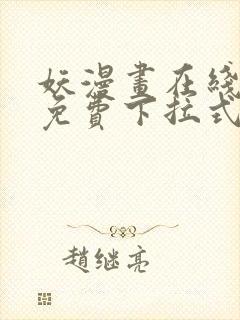 妖漫畫在綫
免費下拉式
趙继亮